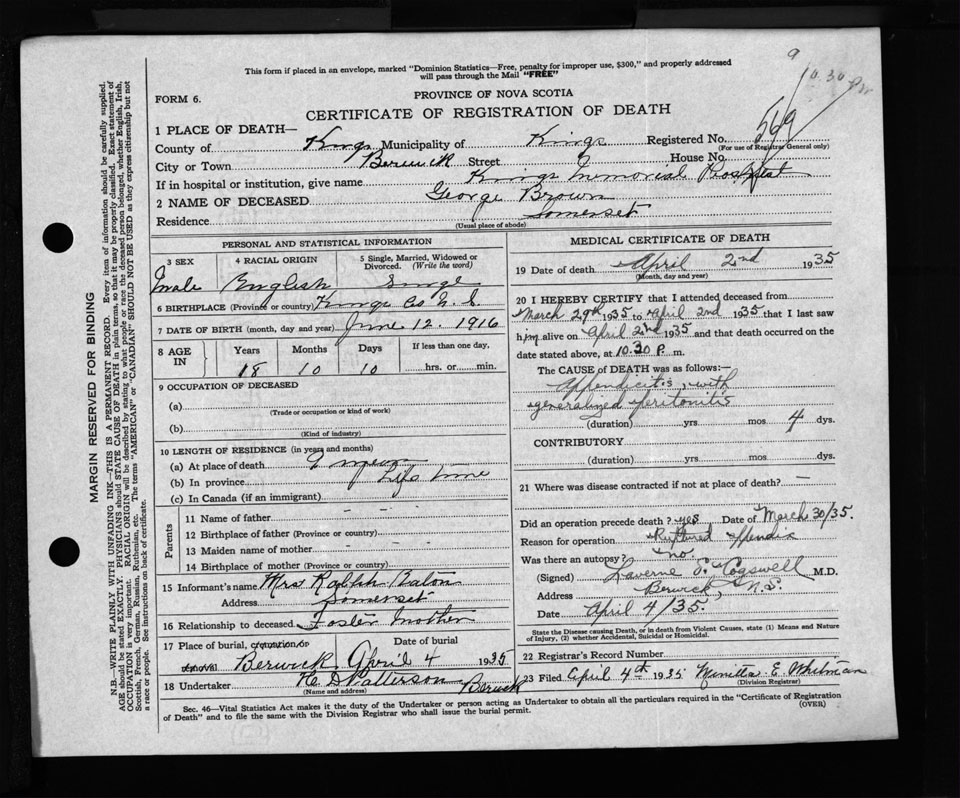 9
10.30 Pm
This form if placed in an envelope, marked "Dominion Statistics—Free, penalty for improper use, $300," and properly addressed
will pass through the Mail "FREE"
FORM 6.
PROVINCE OF NOVA SCOTIA
CERTIFICATE OF REGISTRATION OF DEATH
569
1 PLACE OF DEATH—
County of Kings Municipality of Kings Registered No.
(For use of Registrar General only)
City or Town Berwick Street House No.
If in hospital or institution, give name Kings Memorial Hospital
2 NAME OF DECEASED George Brown
Residence Somerset
(Usual place of abode)
PERSONAL AND STATISTICAL INFORMATION
3 SEX
Male
4 RACIAL ORIGIN
English
5 Single, Married, Widowed or
Divorced. (Write the word)
Single
6 BIRTHPLACE (Province or country) Kings Co N.S.
7 DATE OF BIRTH (month, day and year) June 12. 1916
8 AGE IN
Years Months Days If less than one day,
18 10 10 hrs. or min.
9 OCCUPATION OF DECEASED
(a)
(Trade or occupation or kind of work)
(b)
(Kind of industry)
10 LENGTH OF RESIDENCE (in years and months)
(a) At place of death
(b) In province Life time
(c) In Canada (if an immigrant)
Parents
11 Name of father - - -
12 Birthplace of father (Province or country)
13 Maiden name of mother - - -
14 Birthplace of mother (Province or country)
15 Informant's name Mrs Ralph Eaton
Address Somerset
16 Relationship to deceased Foster Mother
17 Place of burial, cremation or removal Date of burial
Berwick April 4 1935
18 Undertaker H.D. Patterson Berwick
(Name and address)
MEDICAL CERTIFICATE OF DEATH
19 Date of death April 2nd 1935
(Month, day and year)
20 I HEREBY CERTIFY that I attended deceased from
March 29th 1935 to April 2nd 1935 that I last saw
him alive on April 2nd 1935 and that death occurred on the
date stated above, at 10.30 P. m.
The CAUSE of DEATH was as follows:—
Appendicitis, with
generalized peritonitis
(duration) yrs mos 4 dys.
CONTRIBUTORY
(duration) yrs mos dys.
21 Where was disease contracted if not at place of death? —
Did an operation precede death? yes Date of March 30/35
Reason for operation Ruptured appendix
Was there an autopsy? no
(Signed) Laverne S. Cogswell M.D.
Address Berwick, N.S.
Date April 4/35.
State the Disease causing Death, or in death from Violent Causes, state (1) Means and Nature
of Injury, (2) whether Accidental, Suicidal or Homicidal.
22 Registrar's Record Number
23 Filed April 4th 1935 Minetta E. Whitman
(Division Registrar)
Sec. 46—Vital Statistics Act makes it the duty of the Undertaker or person acting as Undertaker to obtain all the particulars required in the "Certificate of Registration
of Death" and to file the same with the Division Registrar who shall issue the burial permit.
(OVER)
MARGIN RESERVED FOR BINDING
N.B.—WRITE PLAINLY WITH UNFADING INK—THIS IS A PERMANENT RECORD. Every item of information should be carefully supplied.
AGE should be stated EXACTLY. PHYSICIANS should STATE CAUSE OF DEATH in plain terms, so that it may be properly classified. Exact statement of
OCCUPATION is very important. RACIAL ORIGIN will be described by stating to what people or race the deceased person belonged, whether English, Irish,
Scottish, French, German, Russian, Ruthenian, etc. The terms "AMERICAN" or "CANADIAN" SHOULD NOT BE USED as they express citizenship but not
a race or people. See instructions on back of certificate.